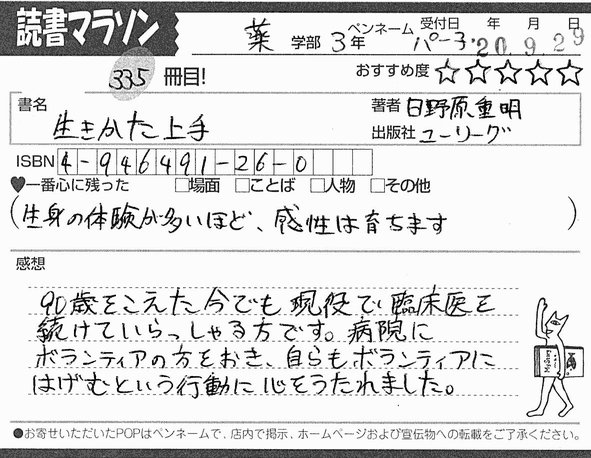 読書マラソン
薬 学部 3年 ペンネーム パー子 受付日 '20年 9月 29日
335 冊目! おすすめ度 ☆☆☆☆☆
書名 生きかた上手
著者 日野原重明
出版社 ユーリーグ
ISBN 4-946491-26-0
♥一番心に残った □場面 □ことば □人物 □その他
(生身の体験が多いほど、感性は育ちます)
感想
90歳をこえた今でも現役で臨床医を
続けていらっしゃる方です。病院に
ボランティアの方をおき、自らもボランティアに
はげむという行動に心をうたれました。
●お寄せいただいたPOPはペンネームで、店内で掲示、ホームページおよび宣伝物への転載をご了承ください。